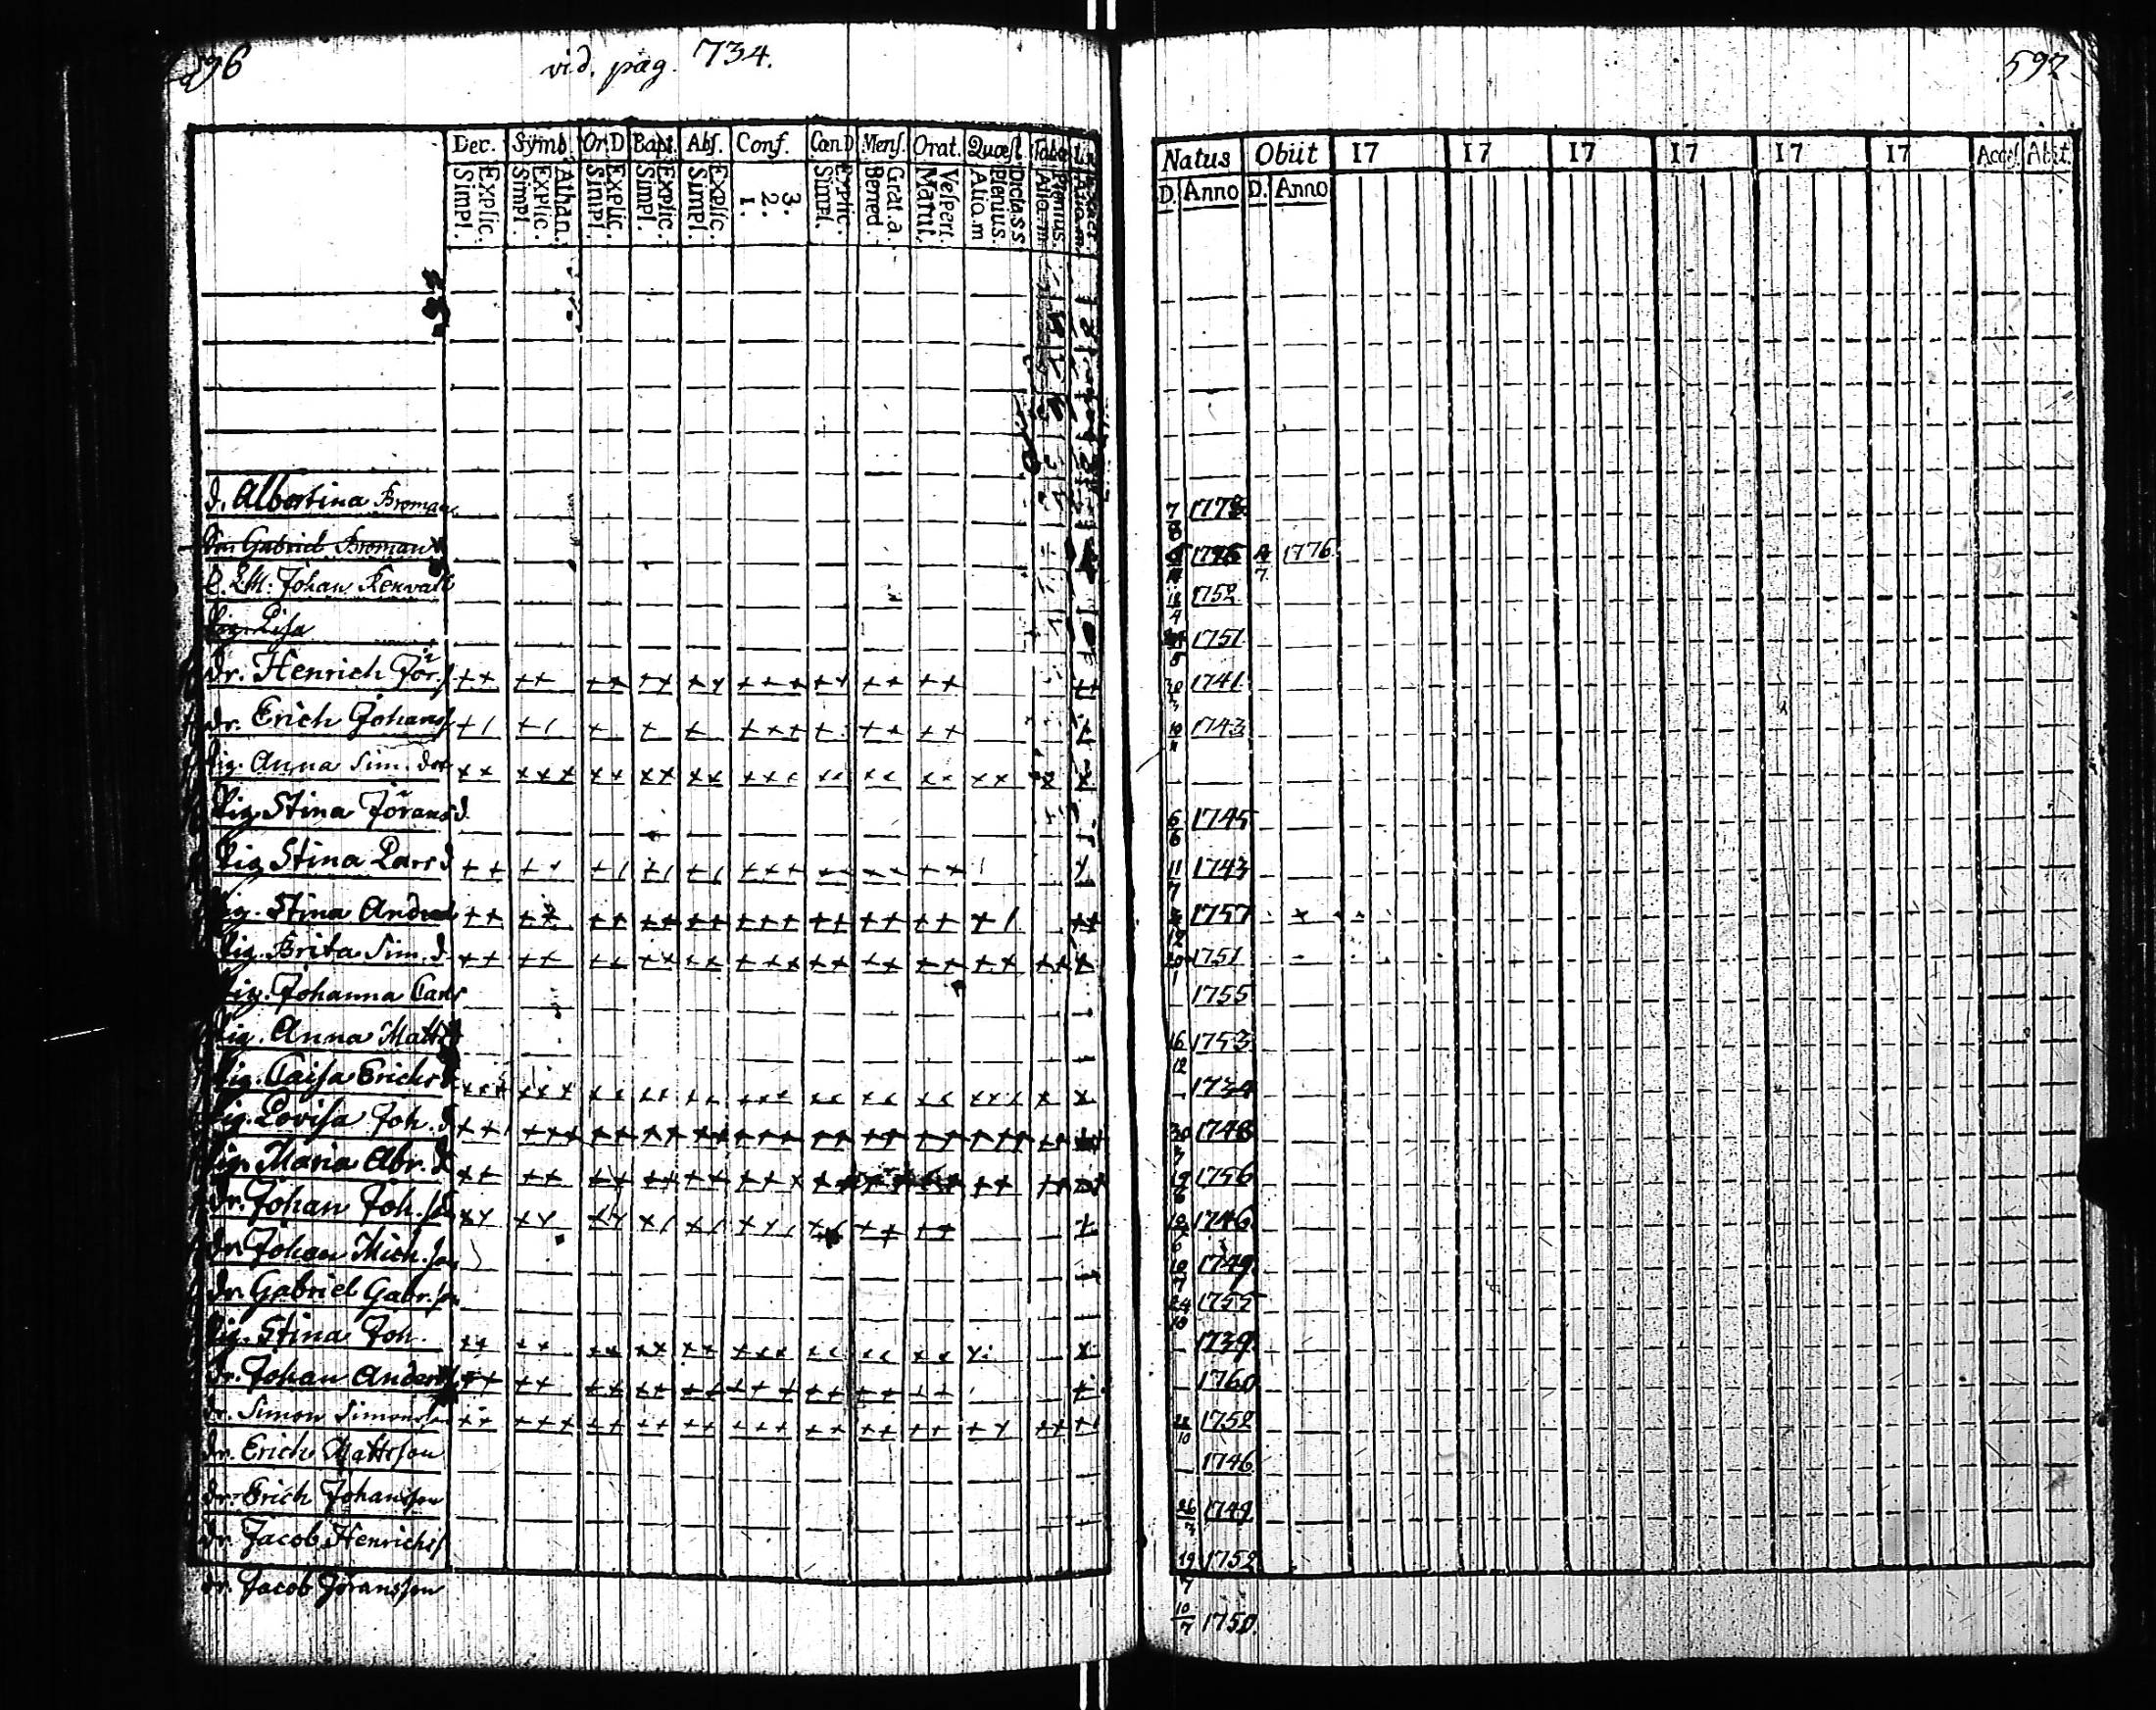 vid. pag. 734.
Dec. Symb. Or.D Bapt. Abs. Conf. Can D Mens. Orat. Quæst Tabæ
Explic. Simpl. Athan. Explic. Simpl. Explic. Simpl. Explic. Simpl. Explic. Simpl. 3. 2. 1. Explic. Simpl. Grat. a. Bened. Vesperi. Matut. Dicta S S Plenius. Aliq. m Plenius. Aliq. m
d. Albertina Broman
Gabriel Broman
Johan Renvall
Pig. Lisa
dr. Henrich Jör. s
dr. Erich Johans
Pig. Anna Sim. dot
Pig. Stina Jörans d.
Pig. Stina Lars d
Pig. Stina Anders
Pig. Brita Sim. d.
Pig. Johanna Carls
Pig. Anna Matts
Pig. Caisa Erichs
Pig. Lovisa Joh. d
Pig. Maria Abr. d
dr. Johan Joh. son
dr. Johan Mich. son
dr. Gabriel Gabr. son
Pig. Stina Joh.
dr. Johan Anders
dr. Simon Simonson
dr. Erich Mattsson
dr. Erich Johansson
dr. Jacob Henrichs
dr. Jacob Jöransson
597
Natus Obiit 17 17 17 17 17 17 Acces. Abit.
D. Anno D. Anno
7/8 1778
1776 4/7. 1776
1752
1751
1741
10/11 1743
6/6 1745
11/7 1743
1757
20/1 1751
1755
16/12 1753
1734
1748
19/6 1756
1746
10/7 1749
24/10 1755
1739
1760
1752
1746
26/3 1749
19/7 1752
10/7 1750.